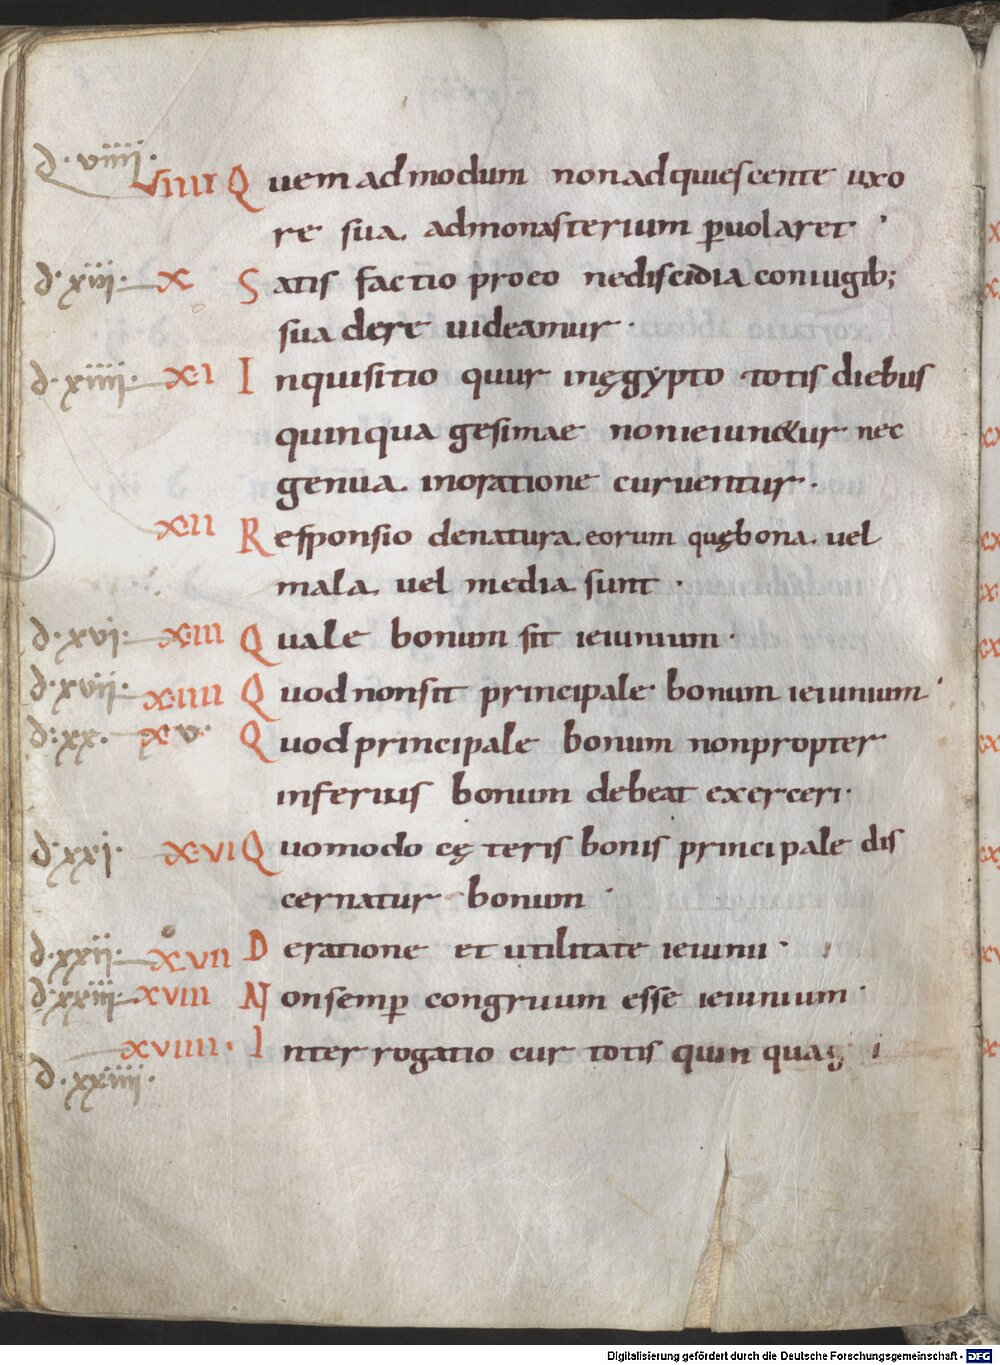 d. viiii. VIIII Quemadmodum non adquiescente uxo
re sua. ad monasterium puolaret
d. xiii. X Satisfactio pro eo ne discidia coniugib;
suadere uideamur.
d. xiiii. XI Inquisitio quur in ęgypto totis diebus
quinquagesimae non ieiun&ur nec
genua in oratione curuentur.
XII Responsio de natura eorum quę bona. uel
mala. uel media sunt.
d. xvi. XIII Quale bonum sit ieiunium.
d. xvii. XIIII Quod non sit principale bonum ieiunium.
d. xx. XV. Quod principale bonum non propter
inferius bonum debeat exerceri.
d. xxi. XVI Quomodo cęteris bonis principale dis
cernatur bonum.
d. xxii. XVII De ratione et utilitate ieiunii.
d. xxiii. XVIII Non semp congruum esse ieiunium.
XVIIII. Interrogatio cur totis quinquagi
d. xxiiii.
Digitalisierung gefördert durch die Deutsche Forschungsgemeinschaft - DFG